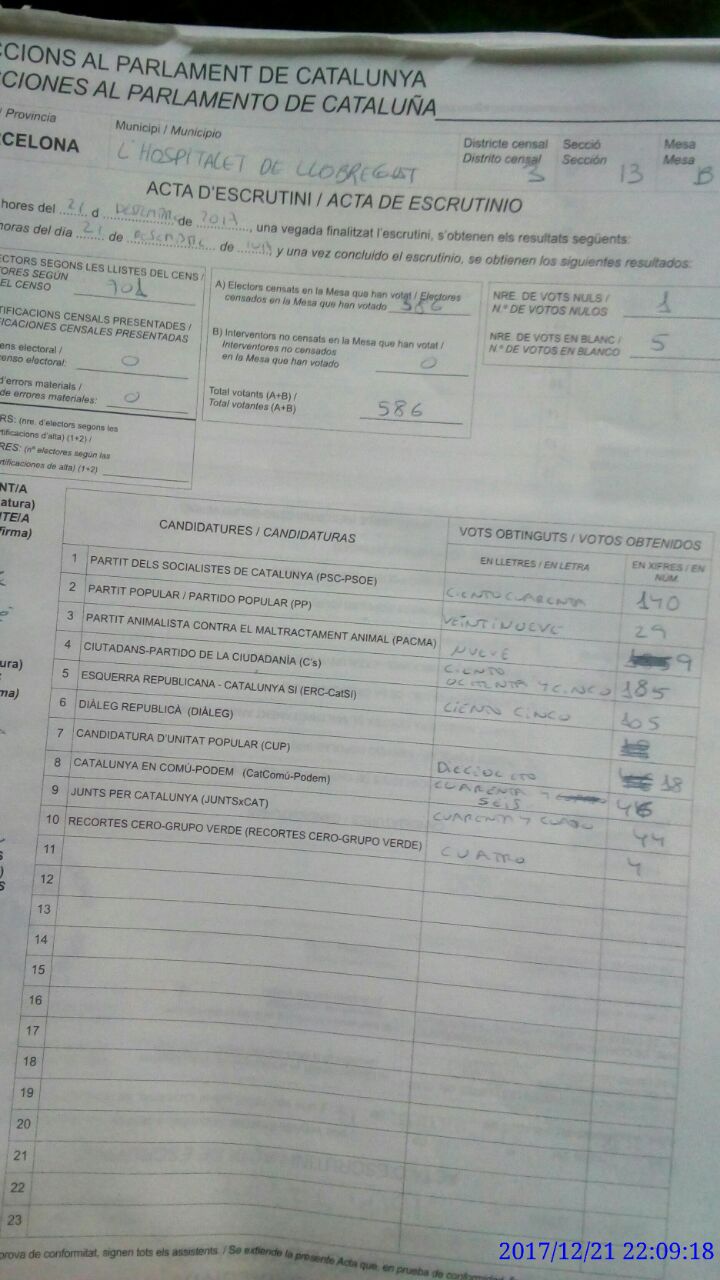 CCIONS AL PARLAMENT DE CATALUNYA
CCIONES AL PARLAMENTO DE CATALUÑA
/ Provincia
CELONA
Municipi / Municipio
L'HOSPITALET DE LLOBREGAT
Districte censal
Distrito censal
3
Secció
Sección
13
Mesa
Mesa
B
ACTA D'ESCRUTINI / ACTA DE ESCRUTINIO
hores del 21 d DESEMBRE de 2017, una vegada finalitzat l'escrutini, s'obtenen els resultats següents:
horas del día 21 de de y una vez concluido el escrutinio, se obtienen los siguientes resultados:
ECTORS SEGONS LES LLISTES DEL CENS /
TORES SEGÚN
EL CENSO 701
TIFICACIONS CENSALS PRESENTADES /
FICACIONES CENSALES PRESENTADAS
ens electoral /
enso electoral: 0
d'errors materials /
de errores materiales: 0
RS: (nre. d'electors segons les
rtificacions d'alta) (1+2) /
RES: (nº electores según las
rtificaciones de alta) (1+2)
A) Electors censats en la Mesa que han votat / Electores
censados en la Mesa que han votado 586
B) Interventors no censats en la Mesa que han votat /
Interventores no censados
en la Mesa que han votado 0
Total votants (A+B) /
Total votantes (A+B) 586
NRE. DE VOTS NULS /
N.º DE VOTOS NULOS 1
NRE. DE VOTS EN BLANC /
N.º DE VOTOS EN BLANCO 5
NT/A
atura)
ITE/A
firma)
ura)
ma)
CANDIDATURES / CANDIDATURAS
VOTS OBTINGUTS / VOTOS OBTENIDOS
EN LLETRES / EN LETRA
EN XIFRES / EN NÚM.
1 PARTIT DELS SOCIALISTES DE CATALUNYA (PSC-PSOE) CIENTO CUARENTA 140
2 PARTIT POPULAR / PARTIDO POPULAR (PP) VEINTINUEVE 29
3 PARTIT ANIMALISTA CONTRA EL MALTRACTAMENT ANIMAL (PACMA) NUEVE 9
4 CIUTADANS-PARTIDO DE LA CIUDADANÍA (C's) CIENTO OCHENTA Y CINCO 185
5 ESQUERRA REPUBLICANA - CATALUNYA SI (ERC-CatSí) CIENTO CINCO 105
6 DIÀLEG REPUBLICÀ (DIÀLEG)
7 CANDIDATURA D'UNITAT POPULAR (CUP) DIECIOCHO 18
8 CATALUNYA EN COMÚ-PODEM (CatComú-Podem) CUARENTA Y SEIS 46
9 JUNTS PER CATALUNYA (JUNTSxCAT) CUARENTA Y CUATRO 44
10 RECORTES CERO-GRUPO VERDE (RECORTES CERO-GRUPO VERDE) CUATRO 4
11
12
13
14
15
16
17
18
19
20
21
22
23
prova de conformitat, signen tots els assistents. / Se extiende la presente Acta que, en prueba de conformidad
2017/12/21 22:09:18